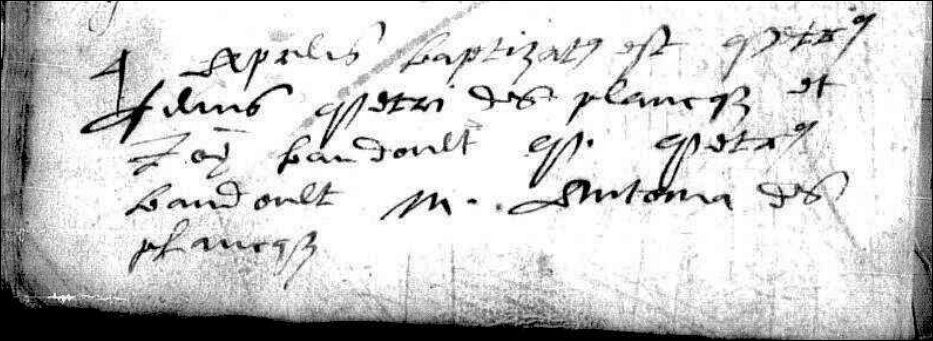 4 Aprilis baptizatus est Petrus
filius Petri des plancques et
Joē baudoult P. Petrus
baudoult M. Antonia des
plancques